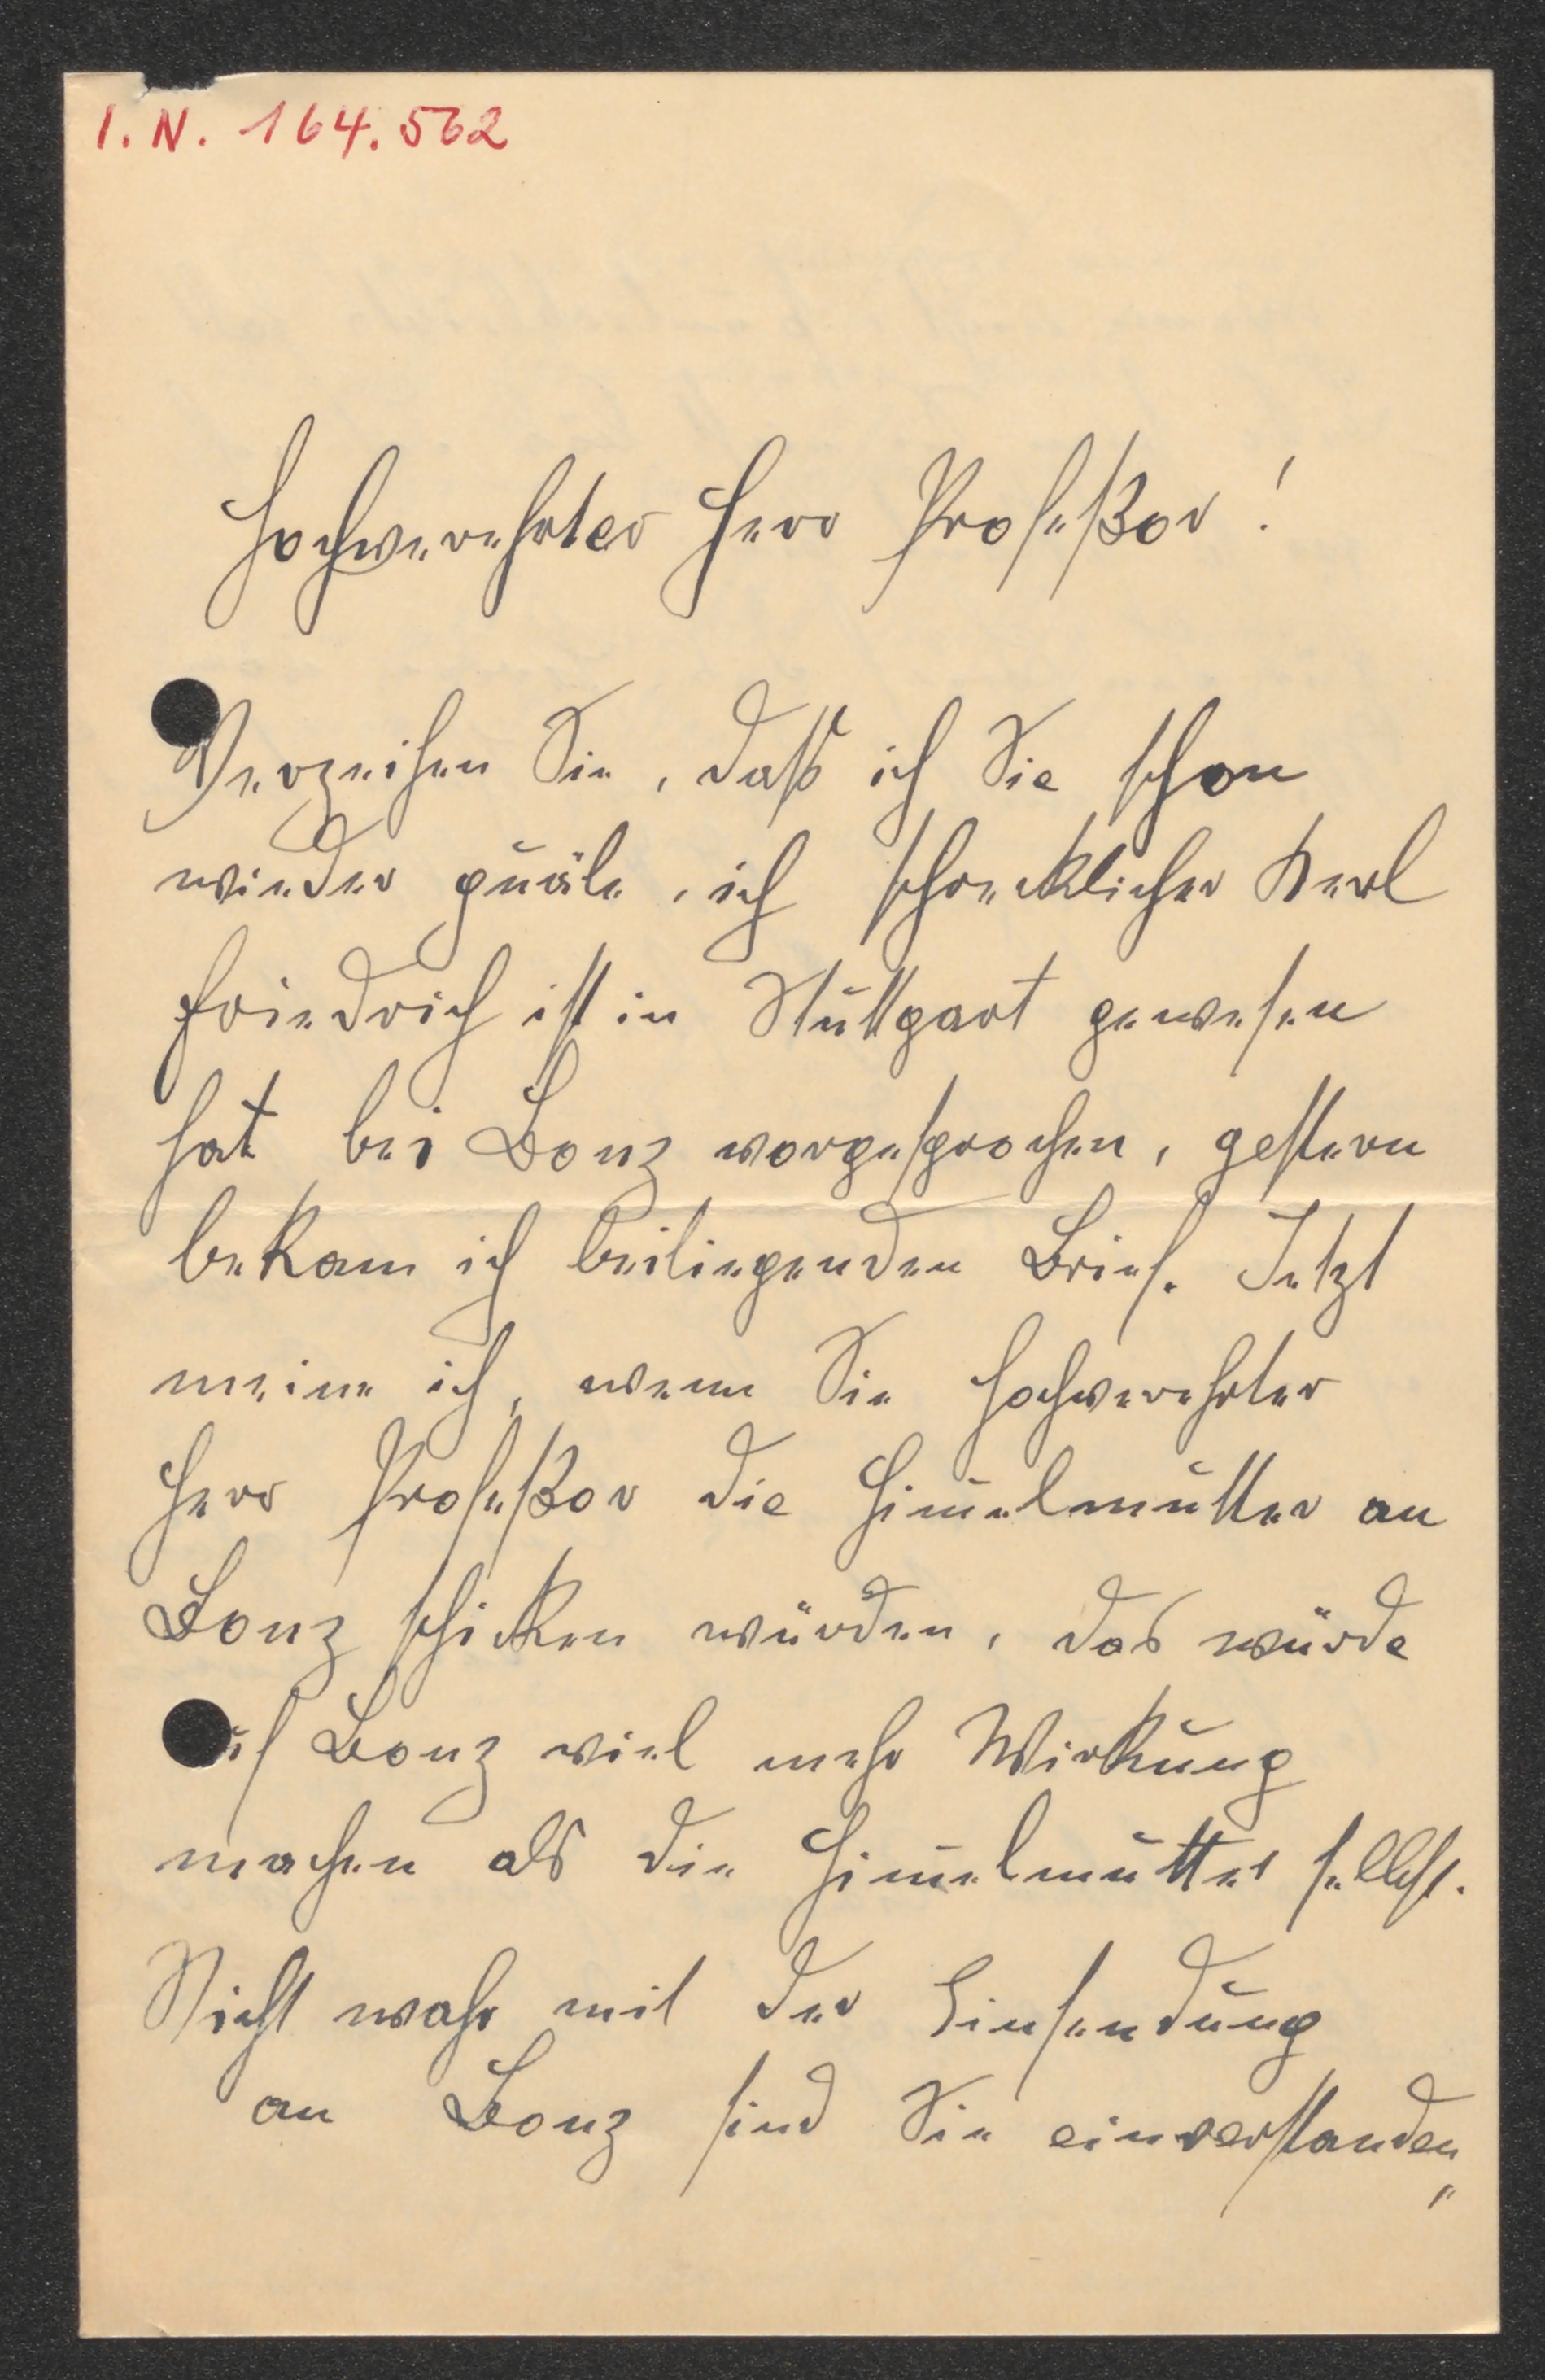 I. N. 164.562
Hochverehrter Herr Profeßor!
Verzeihen Sie, daß ich Sie schon
wieder quäle, ich schrecklicher Kerl
Friedrich ist in Stuttgart gewesen
hat bei Bonz vorgesprochen, gestern
bekam ich beiliegenden Brief. Jetzt
meine ich, wenn Sie hochverehrter
Herr Profeßor die Himelmutter an
Bonz schicken würden, das würde
auf Bonz viel mehr Wirkung
machen als die Himelmutter selbst.
Nicht wahr mit der Einsendung
an Bonz sind Sie einverstanden,